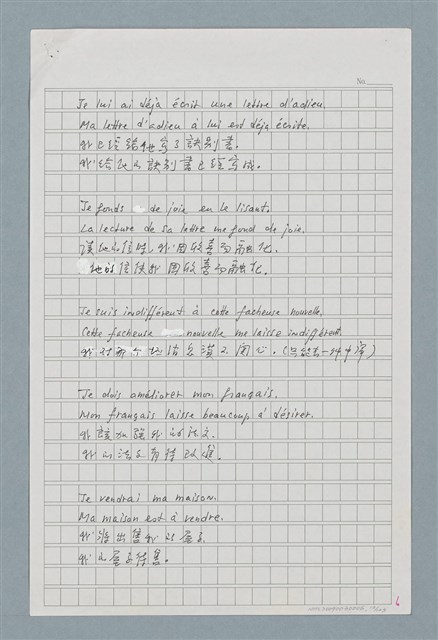 No.
Je lui ai déjà écrit une lettre d'adieu.
Ma lettre d'adieu à lui est déjà écrite.
我已經給他寫了訣別書。
我給他的訣別書已經寫成。
Je fonds de joie en le lisant.
La lecture de sa lettre me fond de joie.
讀他的信時,我因欣喜而融化。
他的信使我因欣喜而融化。
Je suis indifférent à cette facheuse nouvelle.
Cette facheuse nouvelle me laisse indifférent.
我對那個壞消息漠不關心。(只能書一種中譯)
Je dois améliorer mon français.
Mon français laisse beaucoup à désirer.
我該加強我的法文。
我的法文有待改進。
Je vendrai ma maison.
Ma maison est à vendre.
我將出售我的屋子。
我的屋子待售。
6